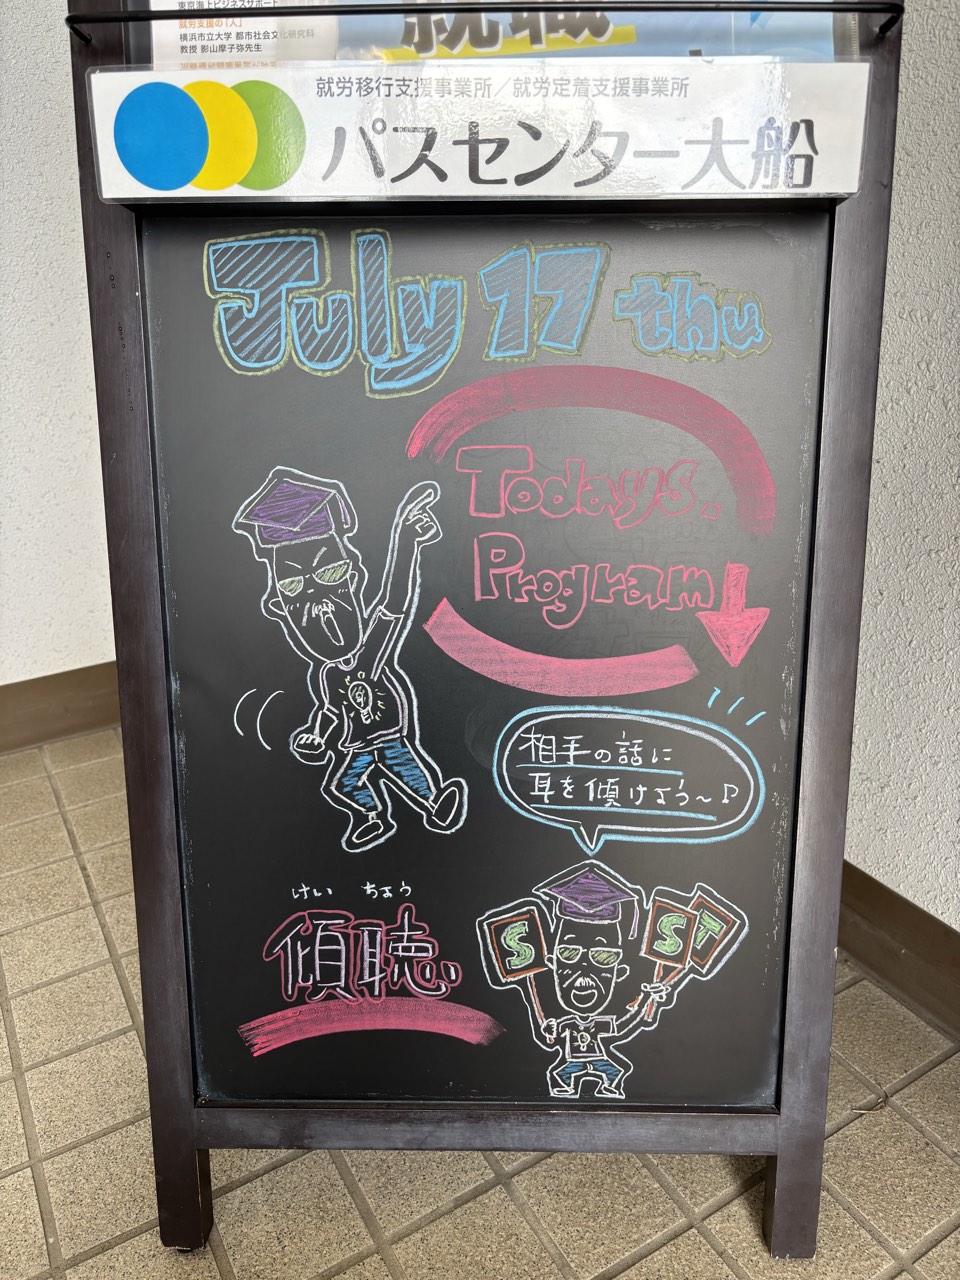 東京海上ビジネスサポート
就労支援の「人」
横浜市立大学 都市社会文化研究科
教授 影山摩子弥先生
就職
就労移行支援事業所／就労定着支援事業所
パスセンター大船
July 17 thu
Todays.
Program
相手の話に
耳を傾けよう〜♪
けい ちょう
傾聴
S
S
ST